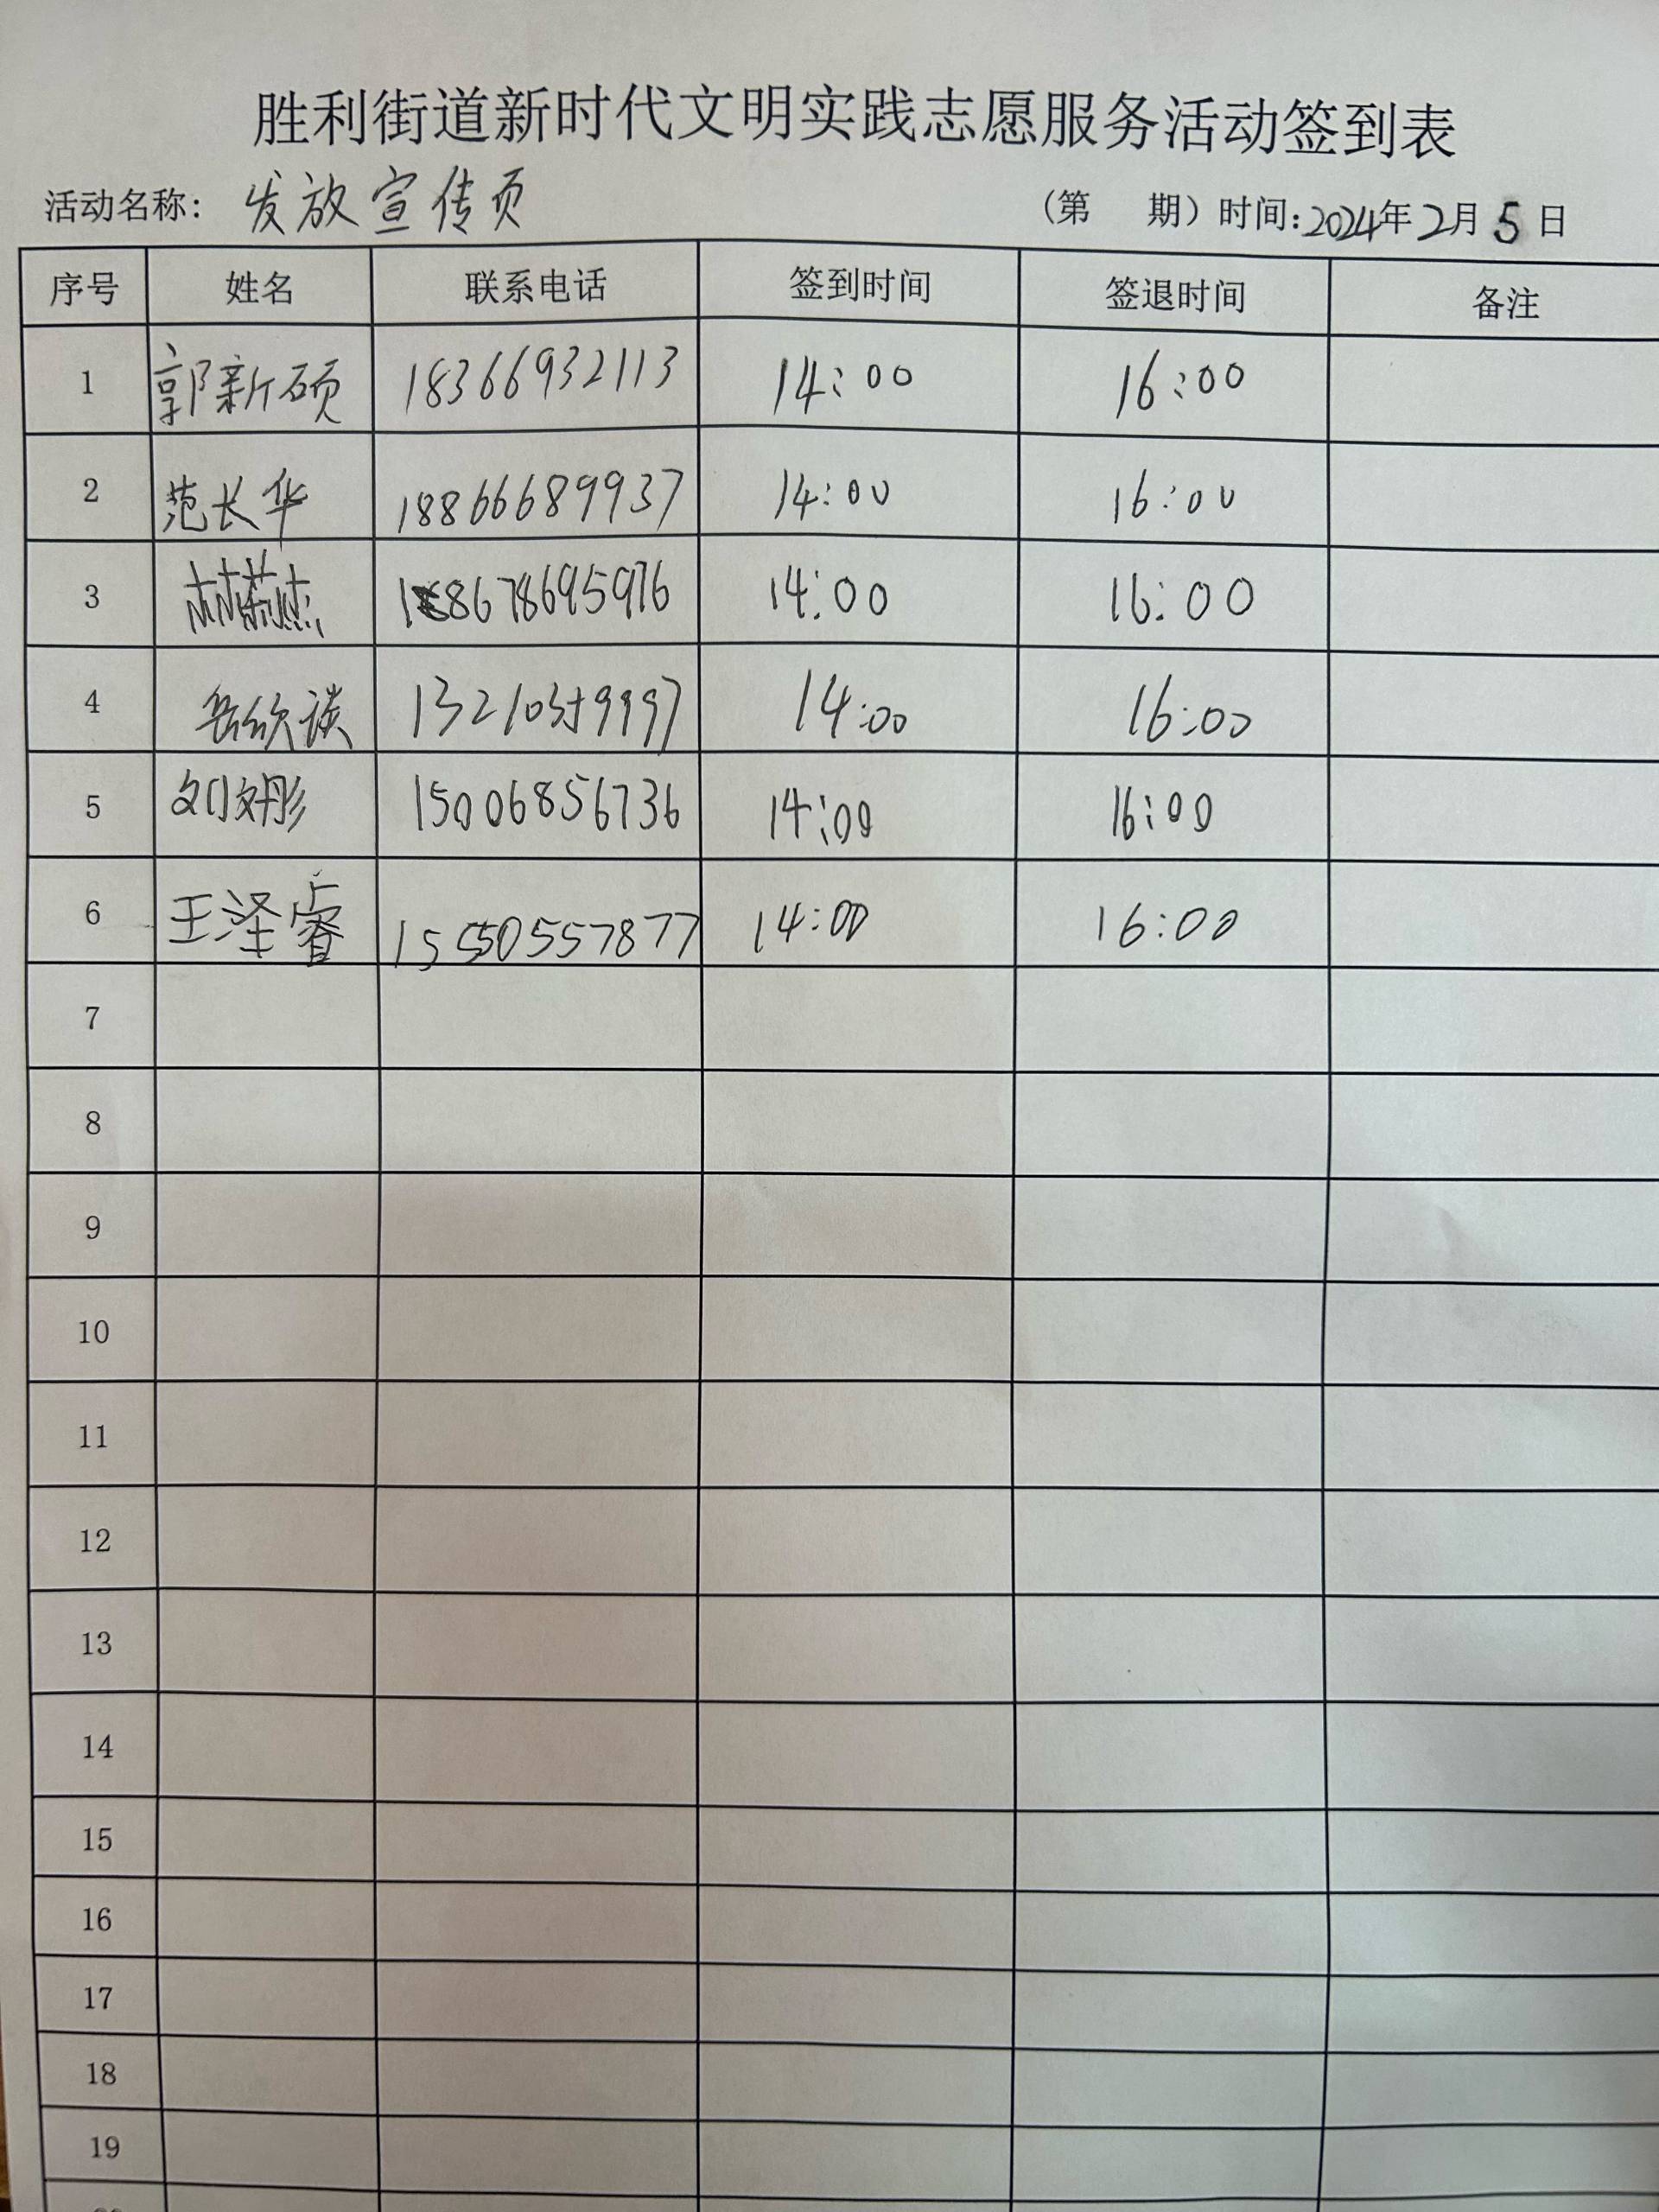 胜利街道新时代文明实践志愿服务活动签到表
活动名称：发放宣传页 （第 期）时间：2024年2月5日
序号 姓名 联系电话 签到时间 签退时间 备注
1 郭新硕 18366932113 14:00 16:00
2 范长华 18866689937 14:00 16:00
3 18678695976 14:00 16:00
4 14:00 16:00
5 刘文彤 15006856736 14:00 16:00
6 王泽睿 15550557877 14:00 16:00
7
8
9
10
11
12
13
14
15
16
17
18
19